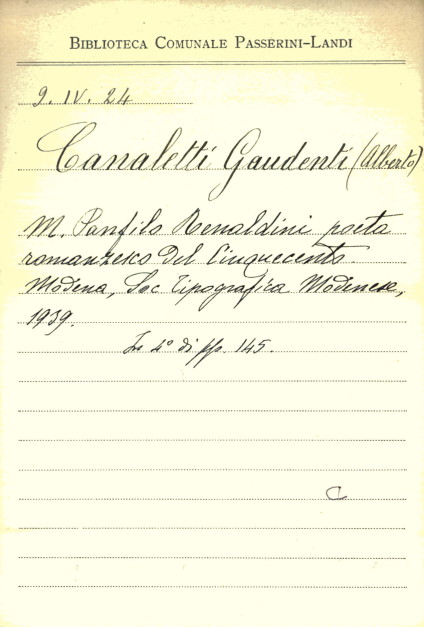 BIBLIOTECA COMUNALE PASSERINI-LANDI
9. IV. 24
Canaletti Gaudenti (Alberto)
M. Panfilo Renaldini poeta
romanzesco del Cinquecento.
Modena, Soc Tipografica Modenese,
1939.
In 4° di pp. 145.
C